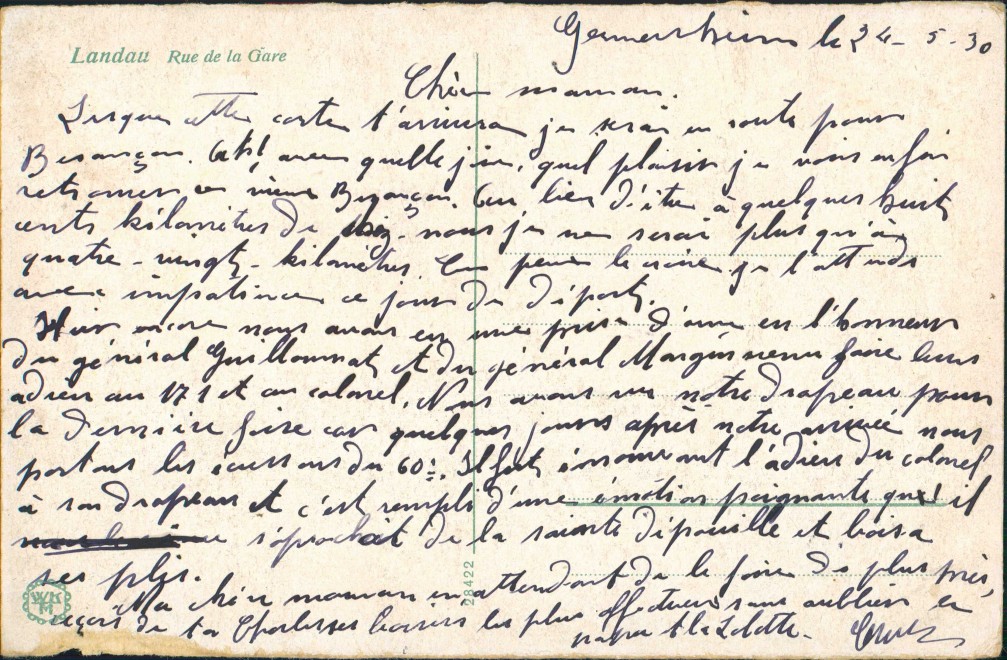 Germersheim le 24-5-30
Landau Rue de la Gare
Chère maman.
Lorsque cette carte t'arrivera je serai en route pour
Besançon. Ah! avec quelle joie, quel plaisir je vais enfin
retrouver ce vieux Besançon. Au lieu d'être à quelques huit
cents kilomètres de chez-nous je ne serai plus qu'à
quatre-vingt-kilomètres. Tu peux le croire je l'attends
avec impatience ce jour du départ.
Hier encore nous avons eu une prise d'arme en l'honneur
du général Guillaumat et du général Mangin venu faire leurs
adieu au 171 et au colonel. Nous avons vu notre drapeau pour
la dernière fois car quelques jours après notre arrivée nous
portons les écussons du 60e. Il fut émouvant l'adieu du colonel
à son drapeau et c'est rempli d'une émotion poignante que il
s'aprochait de la sainte dépouille et baisa
ses plis.
Ma chère maman en attendant de le faire de plus près,
reçois de ton Charles ses baisers les plus affectueux sans oublier
papa et la
28422
WK
M